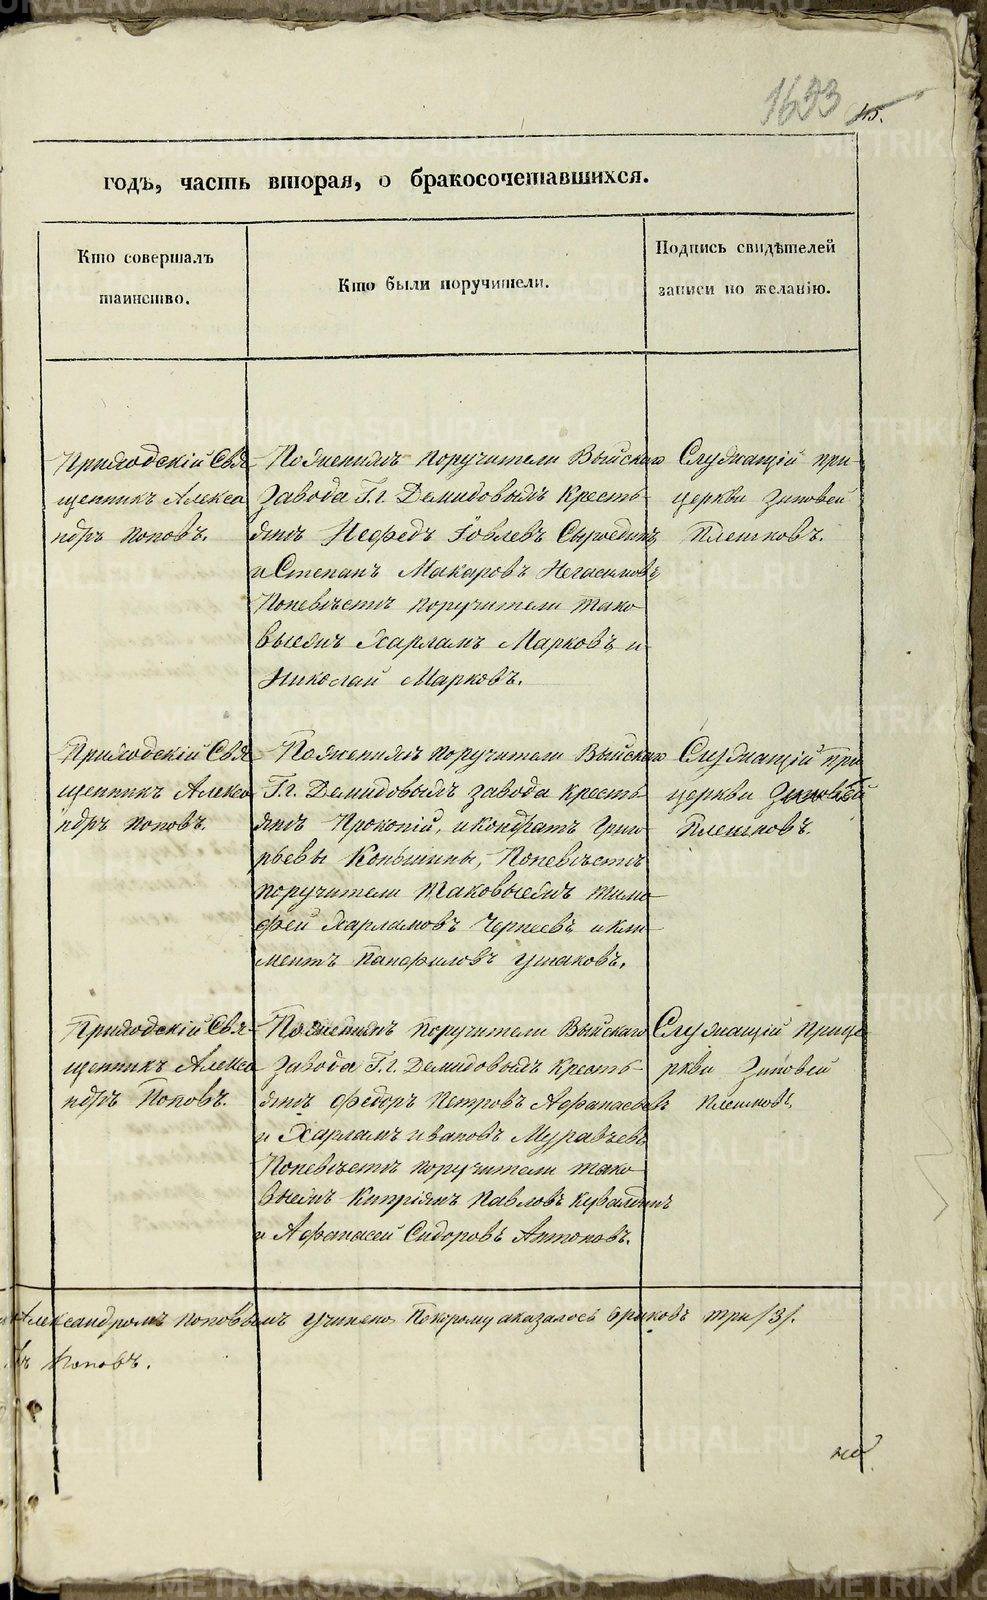 1633 45.
годъ, часть вторая, о бракосочетавшихся.
Кто совершалъ
таинство.
Кто были поручители.
Подпись свидѣтелей
записи по желанію.
Приходскій Свя
щенникъ Алекса
ндръ Поповъ.
По женихѣ поручители Выйскаго
завода Г.г. Демидовыхъ кресть
яне Нефедъ Іовлевъ Сыроединъ
и Степанъ Макаровъ Негасимовъ
По невѣстѣ поручители тако
выеже Харламъ Марковъ и
Николай Марковъ.
Служащій при
церкви Зиновей
Плешковъ.
Приходскій Свя
щенникъ Алекса
ндръ Поповъ.
По женихѣ поручители Выйскаго
Г.г. Демидовыхъ завода кресть
яне Прокопій, и Кондратъ Григо
рьевы Коньшины, По невѣстѣ
поручители таковыеже Тимо
фей Харламовъ Чернеевъ и Кли
ментъ Панфиловъ Ушаковъ.
Служащій при
церкви Зиновей
Плешковъ.
Приходскій Свя-
щенникъ Алекса
ндръ Поповъ.
По женихѣ поручители Выйскаго
завода Г.г. Демидовыхъ кресть
яне Федоръ Петровъ Афанасьевъ
и Харламъ Ивановъ Муравьевъ
По невѣстѣ поручители тако
выеже Кипріянъ Павловъ Кувалдинъ
и Афанасей Сидоровъ Антоновъ.
Служащій при це
ркви Зиновей
Плешковъ.
Александромъ Поповымъ учинено Покоторому оказалось браковъ три /3/.
Поповъ.
METRIKI.GASO-URAL.RU